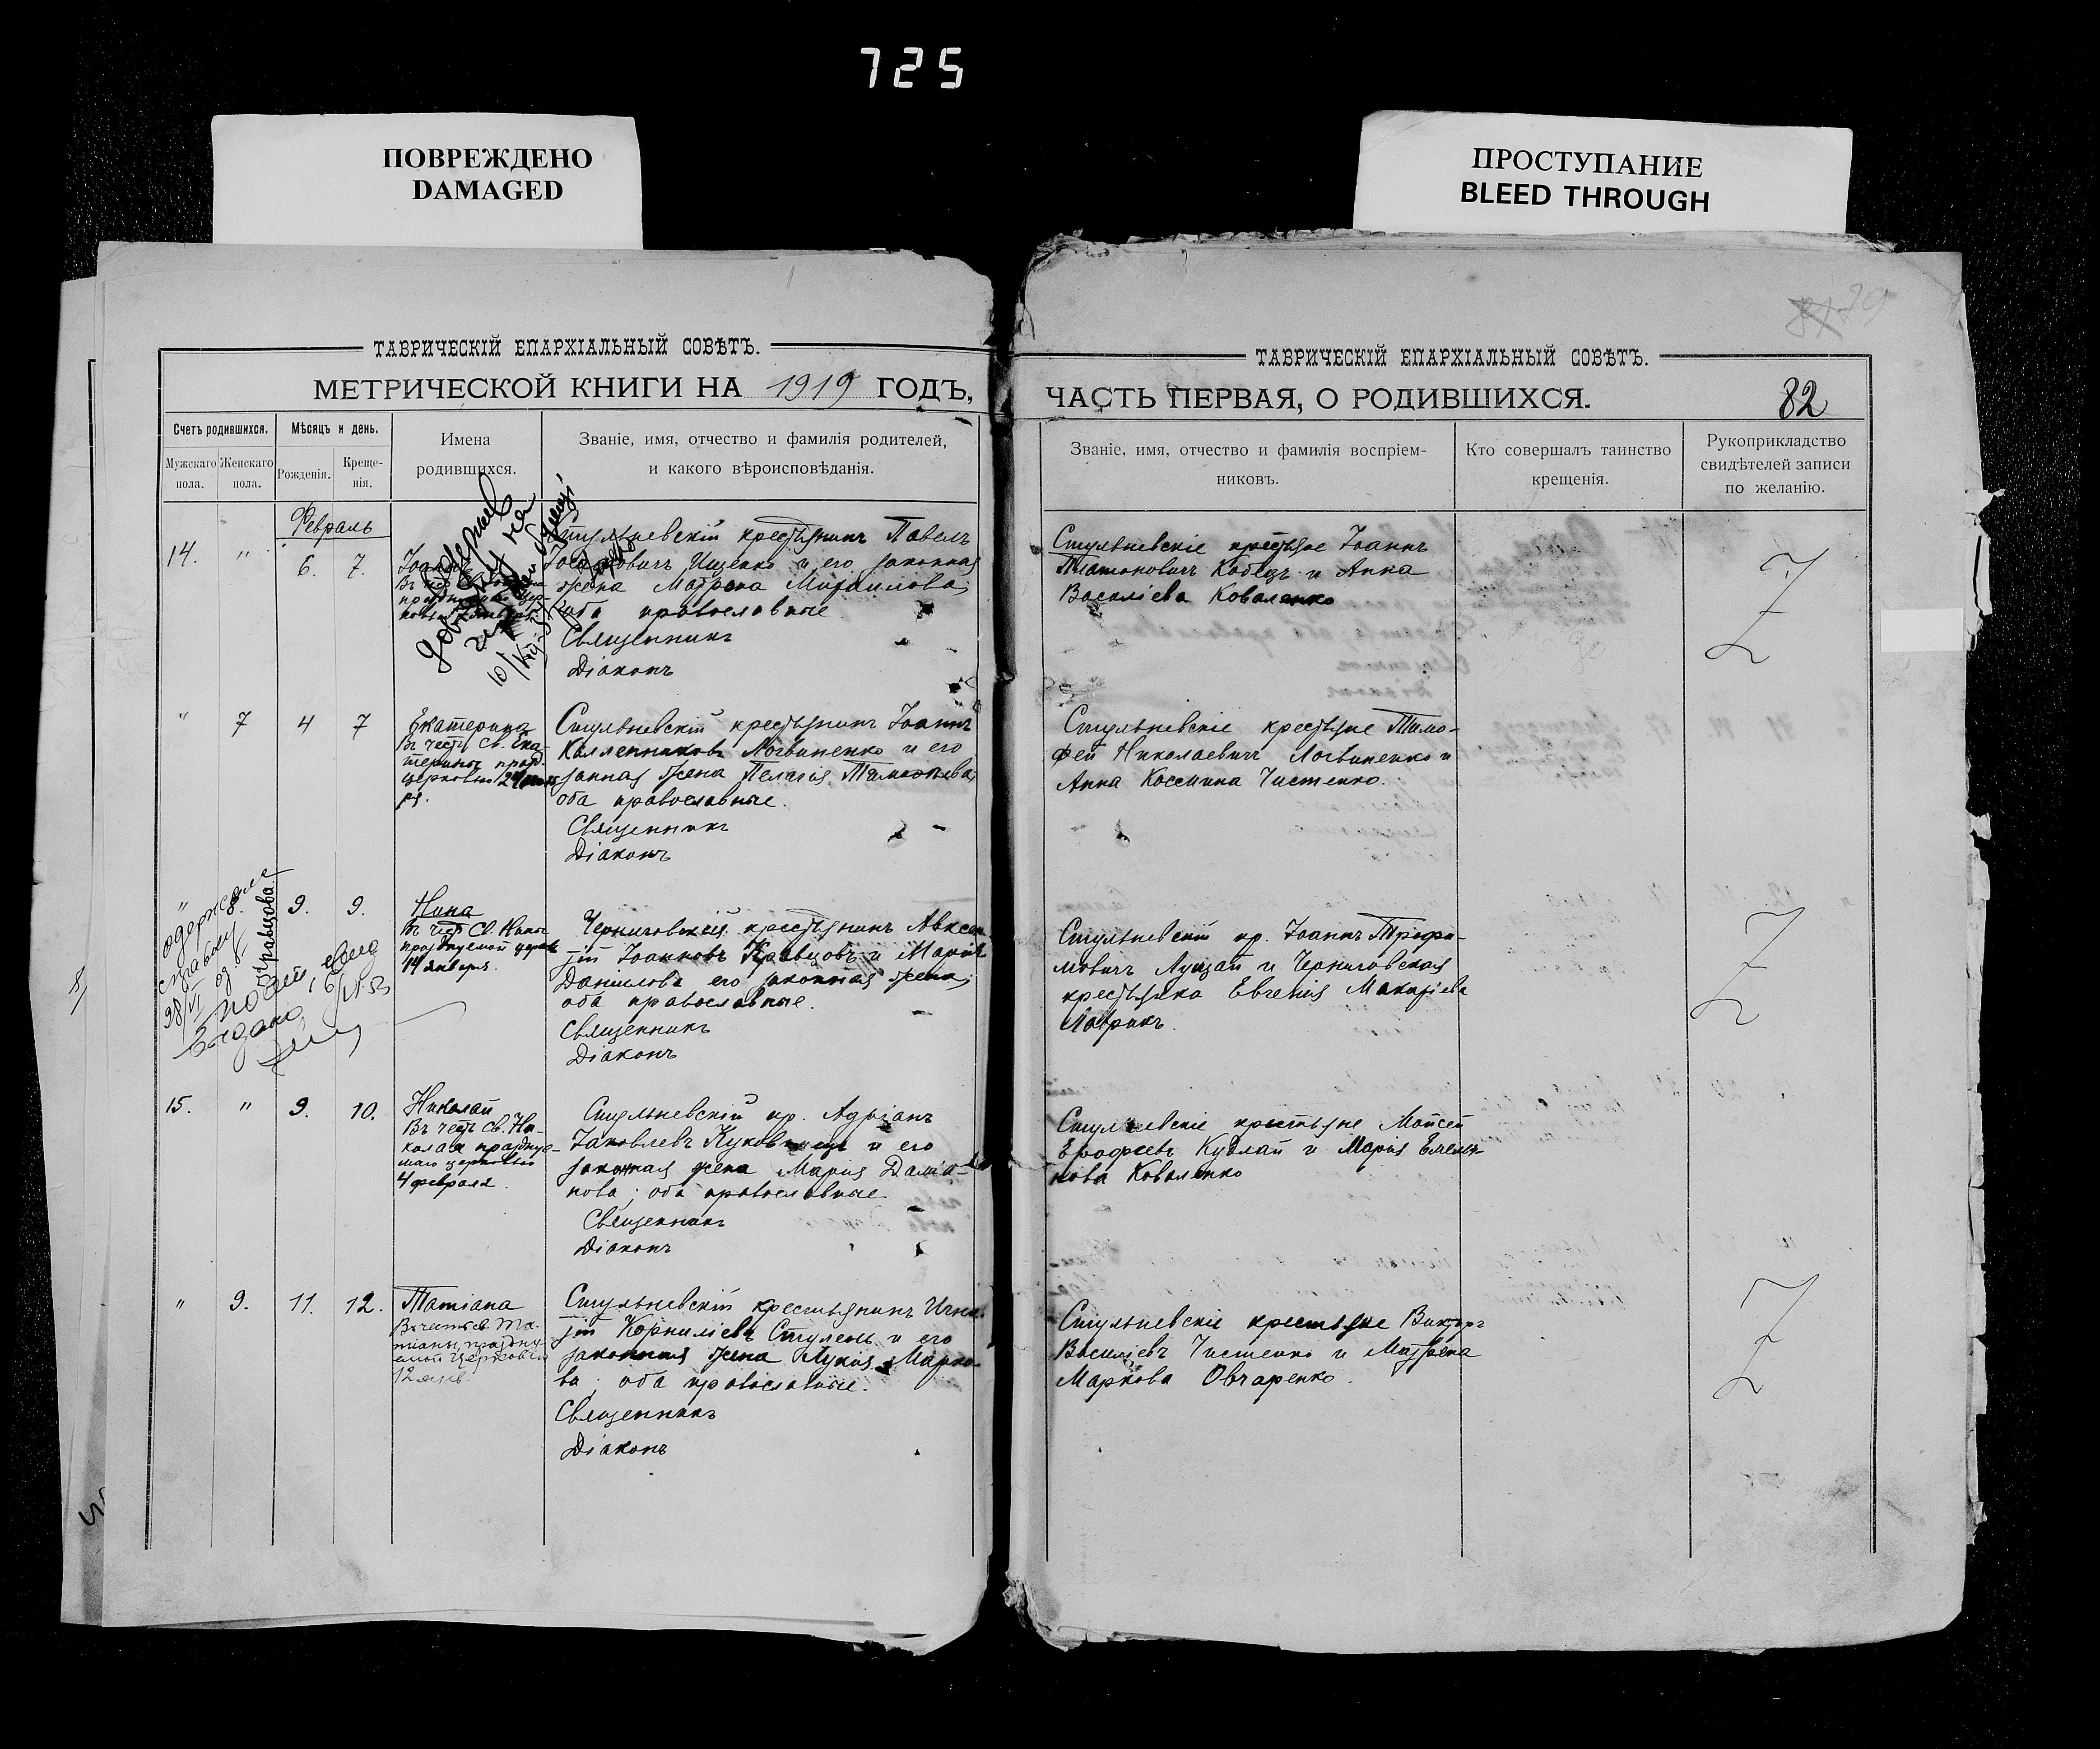 725
ПОВРЕЖДЕНО
DAMAGED
ПРОСТУПАНИЕ
BLEED THROUGH
ТАВРИЧЕСКІЙ ЕПАРХІАЛЬНЫЙ СОВѢТЪ.
МЕТРИЧЕСКОЙ КНИГИ НА 1919 ГОДЪ,
Счетъ родившихся.
Мужскаго пола.
Женскаго пола.
Мѣсяцъ и день.
Рожденія.
Креще-
нія.
Имена
родившихся.
Званіе, имя, отчество и фамилія родителей,
и какого вѣроисповѣданія.
Февраль
14. " 6. 7.
Іоаннъ
Стульневскій крестьянинъ Павелъ
Іоанновичъ Ищенко и его законная
жена Матрона Михаилова;
оба православные.
Священникъ
Діаконъ
" 7 4 7
Екатерина
Въ честь Св. Ека-
терины празд.
церковью 24
Стульневскій крестьянинъ Іоаннъ
Каллениковъ Логвиненко и его
законная жена Пелагія
оба православные.
Священникъ
Діаконъ
" 8. 9. 9.
Нина
Въ честь Св. Нины
празднуемой церк
14 января.
Черниговскій крестьянинъ Авксен
тій Іоанновъ Кравцовъ и Марія
Данилова его законная жена;
оба православные.
Священникъ
Діаконъ
одержала
справку
Кравцова
выдано
15. " 9. 10.
Николай
Въ честь Св. Ни-
колая празднуе-
маго церковью
4 февраля.
Стульневскій кр. Адріанъ
Іаковлевъ и его
законная жена Марія Даміа-
нова; оба православные
Священникъ
Діаконъ
" 9. 11. 12.
Татіана
Въ честь св. Та-
тіаны, праздну-
емой церковью
12 янв.
Стульневскій крестьянинъ Игна
тій Корниліевъ Стулень и его
законная жена Лукія Марко-
ва; оба православные.
Священникъ
Діаконъ
ТАВРИЧЕСКІЙ ЕПАРХІАЛЬНЫЙ СОВѢТЪ.
ЧАСТЬ ПЕРВАЯ, О РОДИВШИХСЯ.
82
Званіе, имя, отчество и фамилія воспріем-
никовъ.
Кто совершалъ таинство
крещенія.
Рукоприкладство
свидѣтелей записи
по желанію.
Стульневскіе крестьяне Іоаннъ
Платоновичъ Кобецъ и Анна
Василіева Коваленко
Стульневскіе крестьяне Тимо-
фей Николаевичъ Логвиненко и
Анна Космина Чистенко.
Стульневскій кр. Іоаннъ Трофи-
мовичъ Луцай и Черниговская
крестьянка Евгенія Макаріева
Лаврикъ.
Стульневскіе крестьяне Мойсей
Ерофеевъ Кудлай и Марія Емелья
нова Коваленко
Стульневскіе крестьяне Викторъ
Василіевъ Чистенко и Матрона
Маркова Овчаренко.